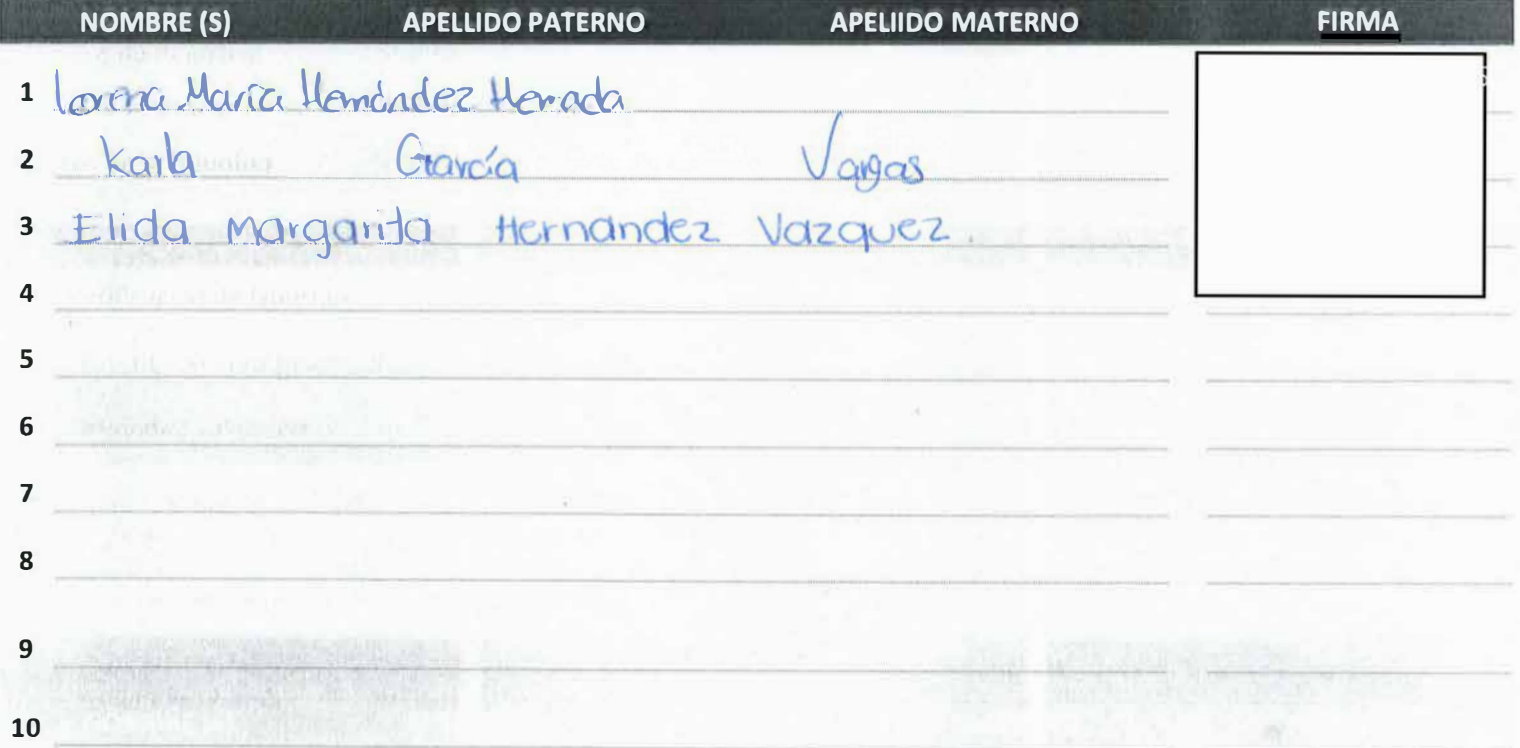 NOMBRE (S) APELLIDO PATERNO APELIIDO MATERNO FIRMA
1 Lorena María Hernández Herrada
2 Karla García Vargas
3 Elida Margarita Hernandez Vazquez
4
5
6
7
8
9
10